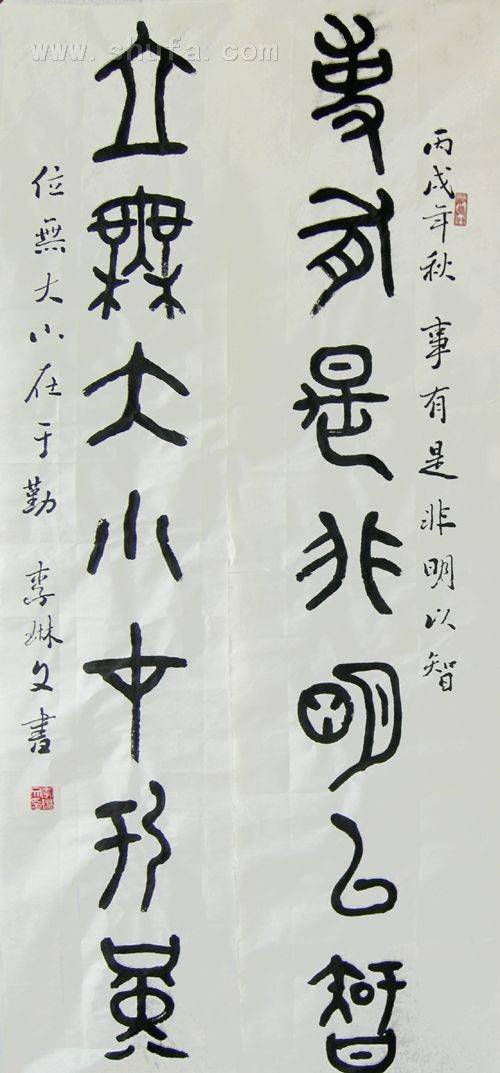 www.shufa.com
丙戌年秋 事有是非明以智
事有是非明以智
立無大小才于堇
位無大小在于勤 李琳文書